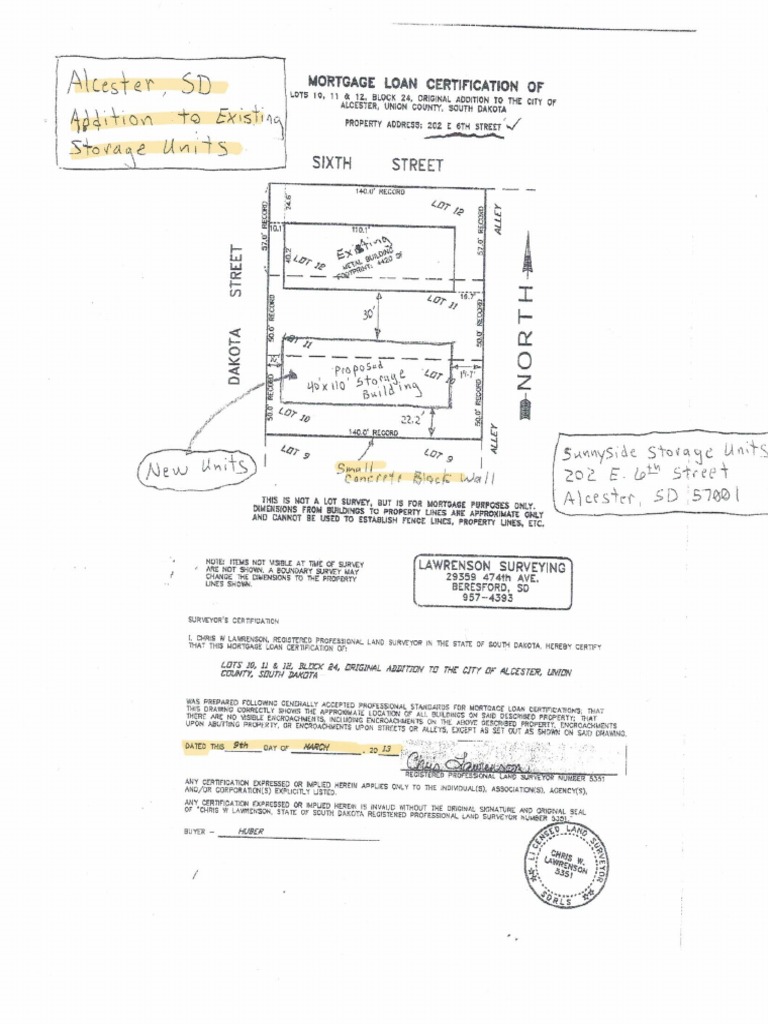 Alcester, SD
Addition to Existing
Storage Units
MORTGAGE LOAN CERTIFICATION OF
LOTS 10, 11 & 12, BLOCK 24, ORIGINAL ADDITION TO THE CITY OF
ALCESTER, UNION COUNTY, SOUTH DAKOTA
PROPERTY ADDRESS: 202 E 6TH STREET
SIXTH STREET
140.0' RECORD
LOT 12
ALLEY
24.6'
57.0' RECORD
57.0' RECORD
10.1'
110.1'
40.2'
Existing
METAL BUILDING
FOOTPRINT: 4420 SF
LOT 12
LOT 11
16.7'
DAKOTA STREET
NORTH
50.0' RECORD
50.0' RECORD
30'
LOT 11
Proposed
40'x110' Storage
Building
LOT 10
19.7'
50.0' RECORD
50.0' RECORD
LOT 10
22.2'
140.0' RECORD
ALLEY
LOT 9
LOT 9
New Units
Small
Concrete Block Wall
Sunnyside Storage Units
202 E. 6th Street
Alcester, SD 57001
THIS IS NOT A LOT SURVEY, BUT IS FOR MORTGAGE PURPOSES ONLY.
DIMENSIONS FROM BUILDINGS TO PROPERTY LINES ARE APPROXIMATE ONLY
AND CANNOT BE USED TO ESTABLISH FENCE LINES, PROPERTY LINES, ETC.
NOTE: ITEMS NOT VISIBLE AT TIME OF SURVEY
ARE NOT SHOWN. A BOUNDARY SURVEY MAY
CHANGE THE DIMENSIONS TO THE PROPERTY
LINES SHOWN.
LAWRENSON SURVEYING
29359 474th AVE.
BERESFORD, SD
957-4393
SURVEYOR'S CERTIFICATION
I, CHRIS W LAWRENSON, REGISTERED PROFESSIONAL LAND SURVEYOR IN THE STATE OF SOUTH DAKOTA, HEREBY CERTIFY
THAT THIS MORTGAGE LOAN CERTIFICATION OF:
LOTS 10, 11 & 12, BLOCK 24, ORIGINAL ADDITION TO THE CITY OF ALCESTER, UNION
COUNTY, SOUTH DAKOTA
WAS PREPARED FOLLOWING GENERALLY ACCEPTED PROFESSIONAL STANDARDS FOR MORTGAGE LOAN CERTIFICATIONS; THAT
THIS DRAWING CORRECTLY SHOWS THE APPROXIMATE LOCATION OF ALL BUILDINGS ON SAID DESCRIBED PROPERTY; THAT
THERE ARE NO VISIBLE ENCROACHMENTS, INCLUDING ENCROACHMENTS ON THE ABOVE DESCRIBED PROPERTY, ENCROACHMENTS
UPON ABUTTING PROPERTY, OR ENCROACHMENTS UPON STREETS OR ALLEYS, EXCEPT AS SET OUT AS SHOWN ON SAID DRAWING.
DATED THIS 9th DAY OF MARCH, 20 13
Chris Lawrenson
REGISTERED PROFESSIONAL LAND SURVEYOR NUMBER 5351
ANY CERTIFICATION EXPRESSED OR IMPLIED HEREIN APPLIES ONLY TO THE INDIVIDUAL(S), ASSOCIATION(S), AGENCY(S),
AND/OR CORPORATION(S) EXPLICITLY LISTED.
ANY CERTIFICATION EXPRESSED OR IMPLIED HEREIN IS INVALID WITHOUT THE ORIGINAL SIGNATURE AND ORIGINAL SEAL
OF "CHRIS W LAWRENSON, STATE OF SOUTH DAKOTA REGISTERED PROFESSIONAL LAND SURVEYOR NUMBER 5351."
BUYER – HUBER
LICENSED LAND SURVEYOR
CHRIS W.
LAWRENSON
5351
SDRLS